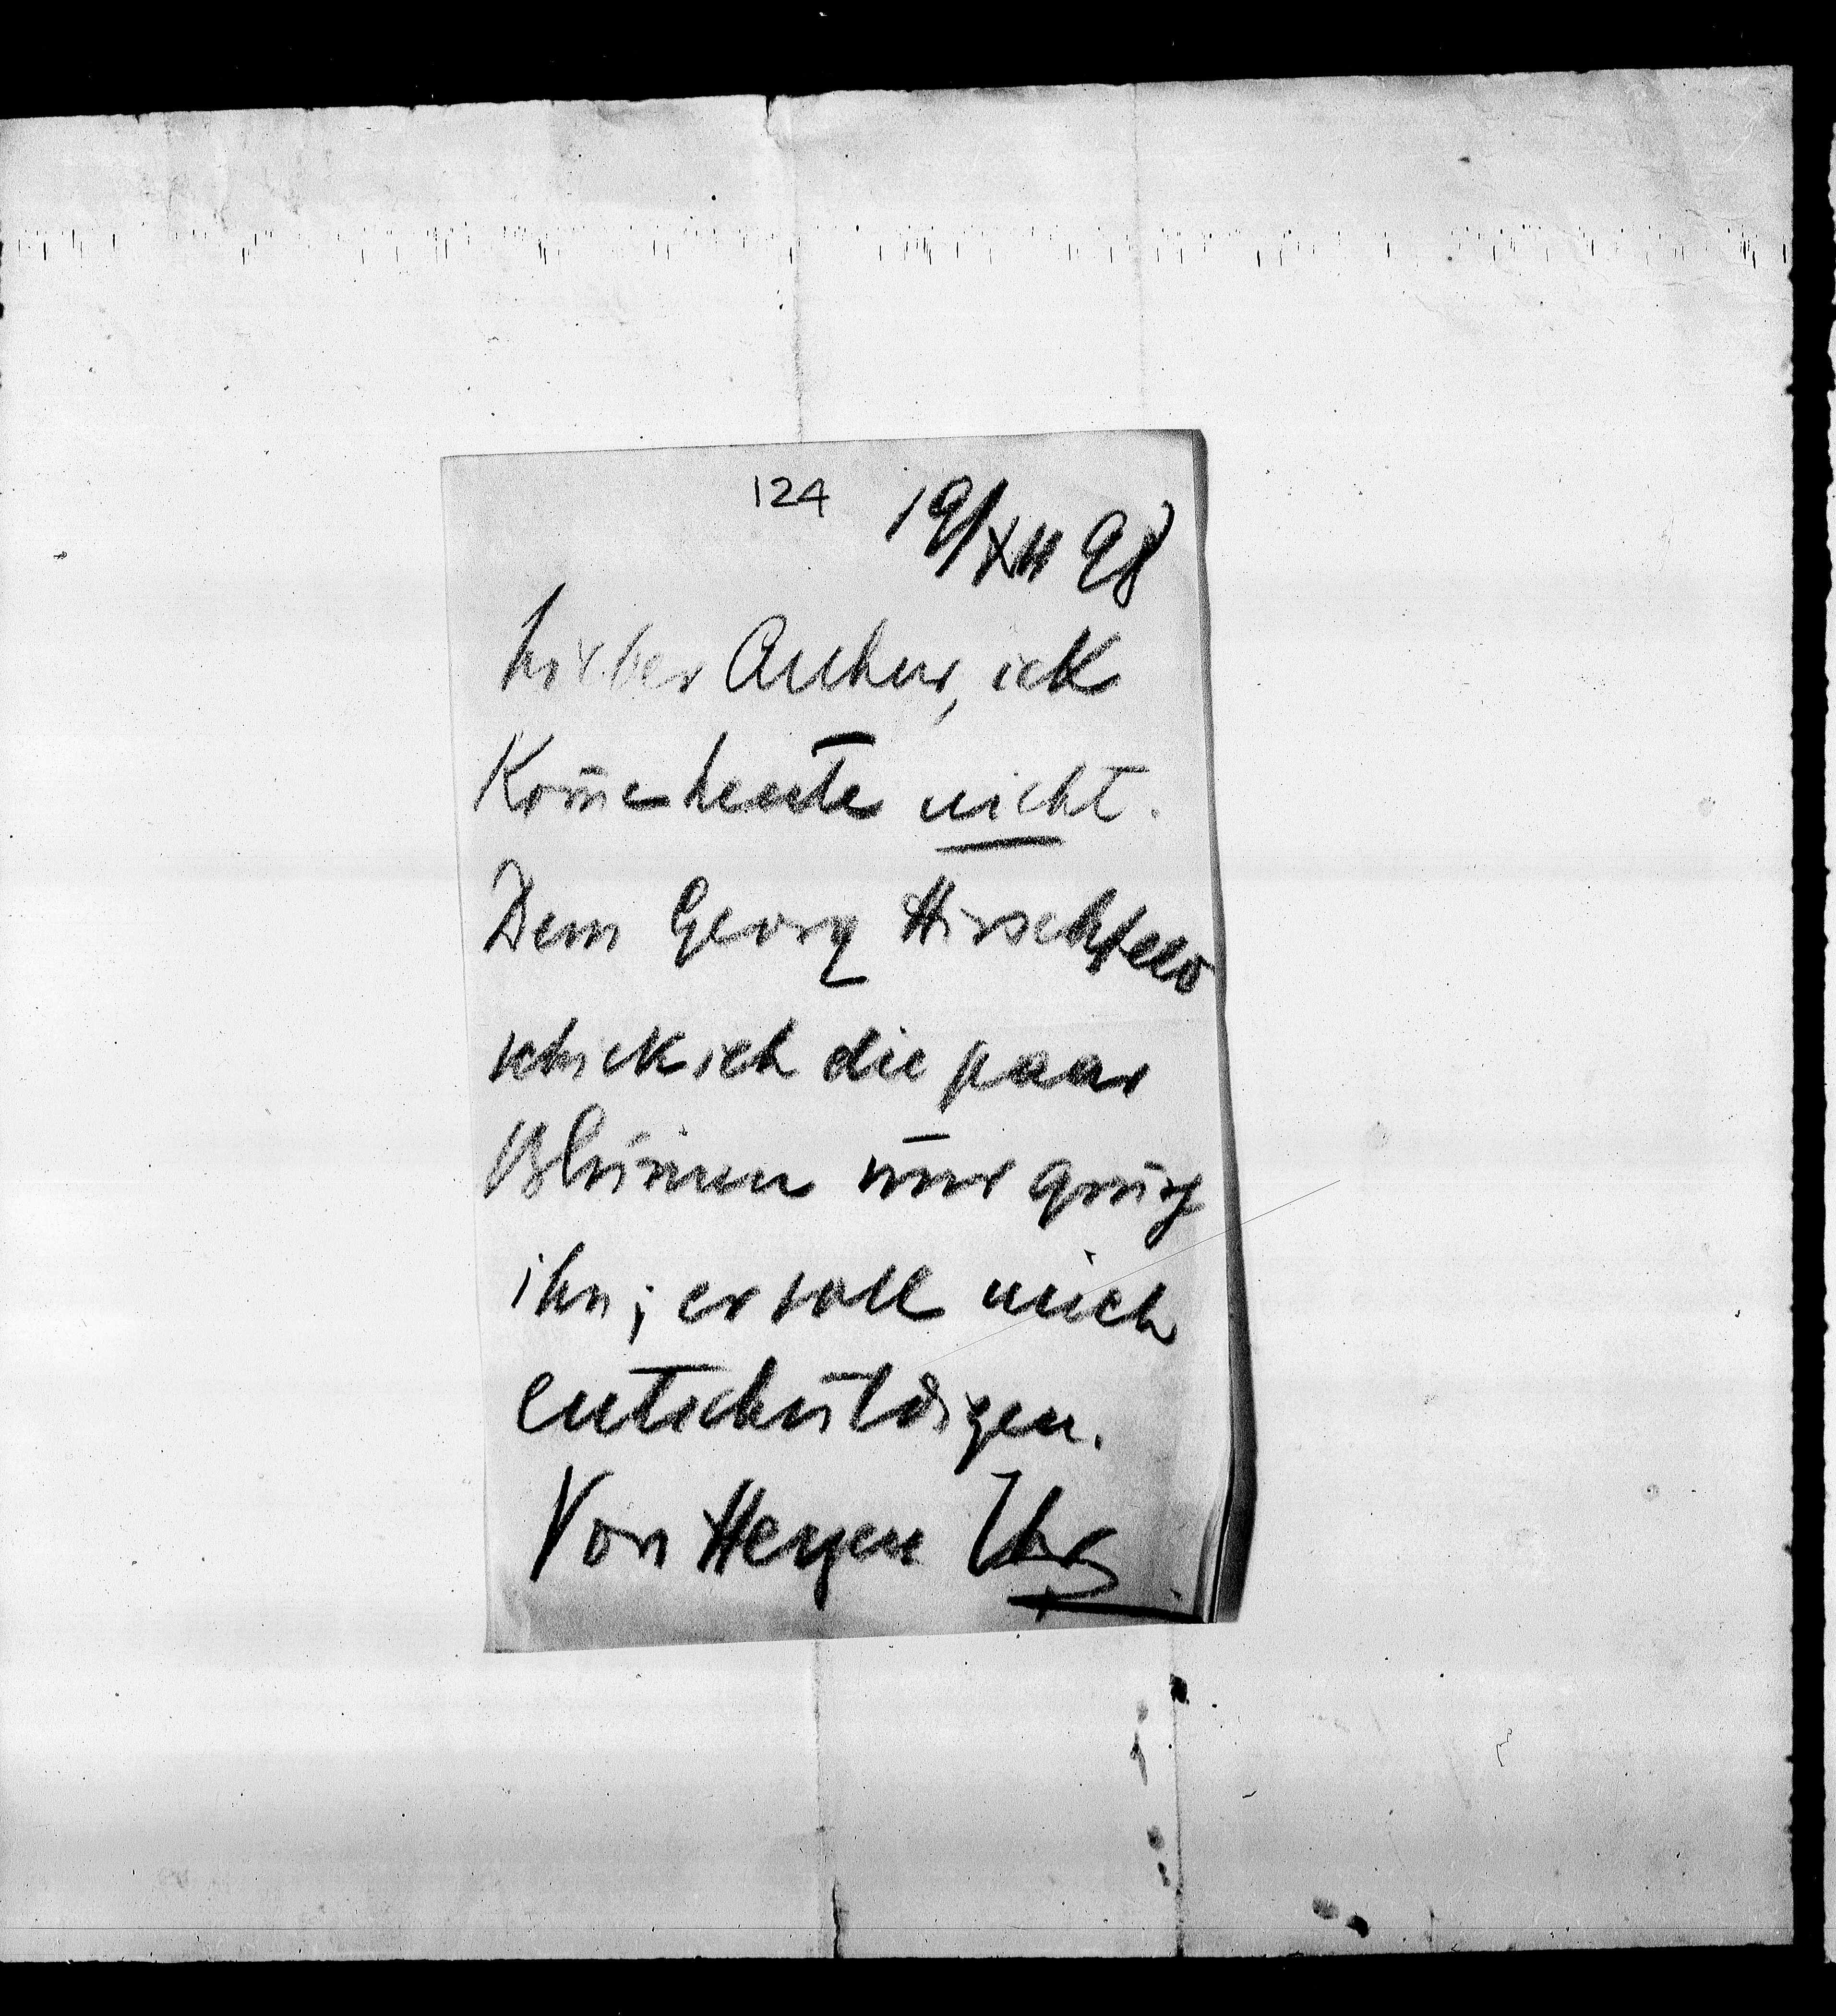 124 19/XII 98
Lieber Arthur, ich
kom̄e heute nicht.
Dem Georg Hirschfeld
schick ich die paar
Blumen und grüß
ihn; er soll mich
entschuldigen.
Von Herzen Ihr